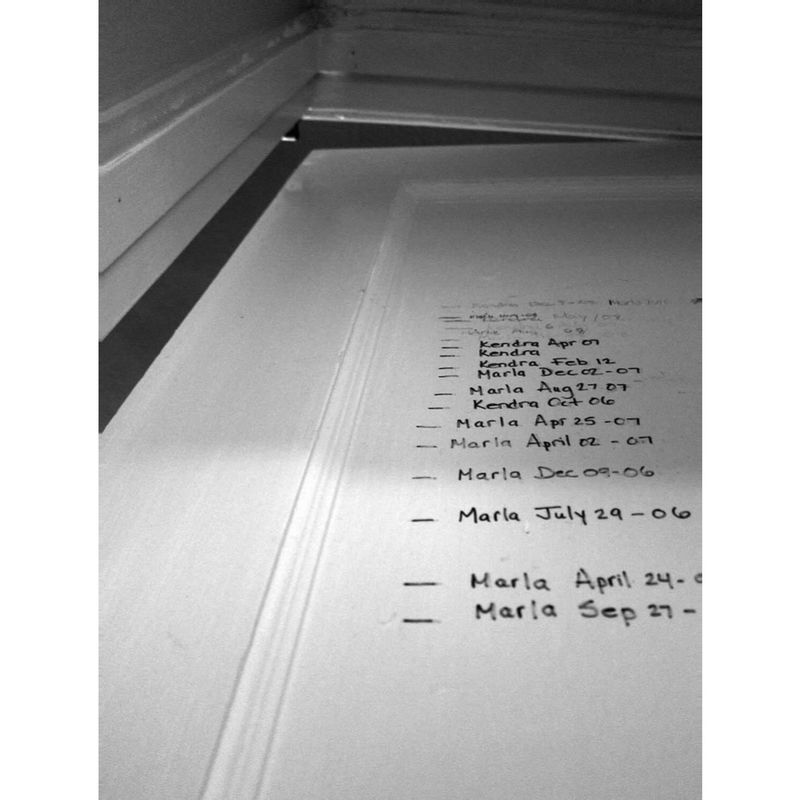 Dec Marla
May/08
Aug 08
Kendra Apr 07
Kendra
Kendra Feb 12
Marla Dec 02-07
Marla Aug 27 07
Kendra Oct 06
Marla Apr 25-07
Marla April 02-07
Marla Dec 09-06
Marla July 29-06
Marla April 24-
Marla Sep 27-